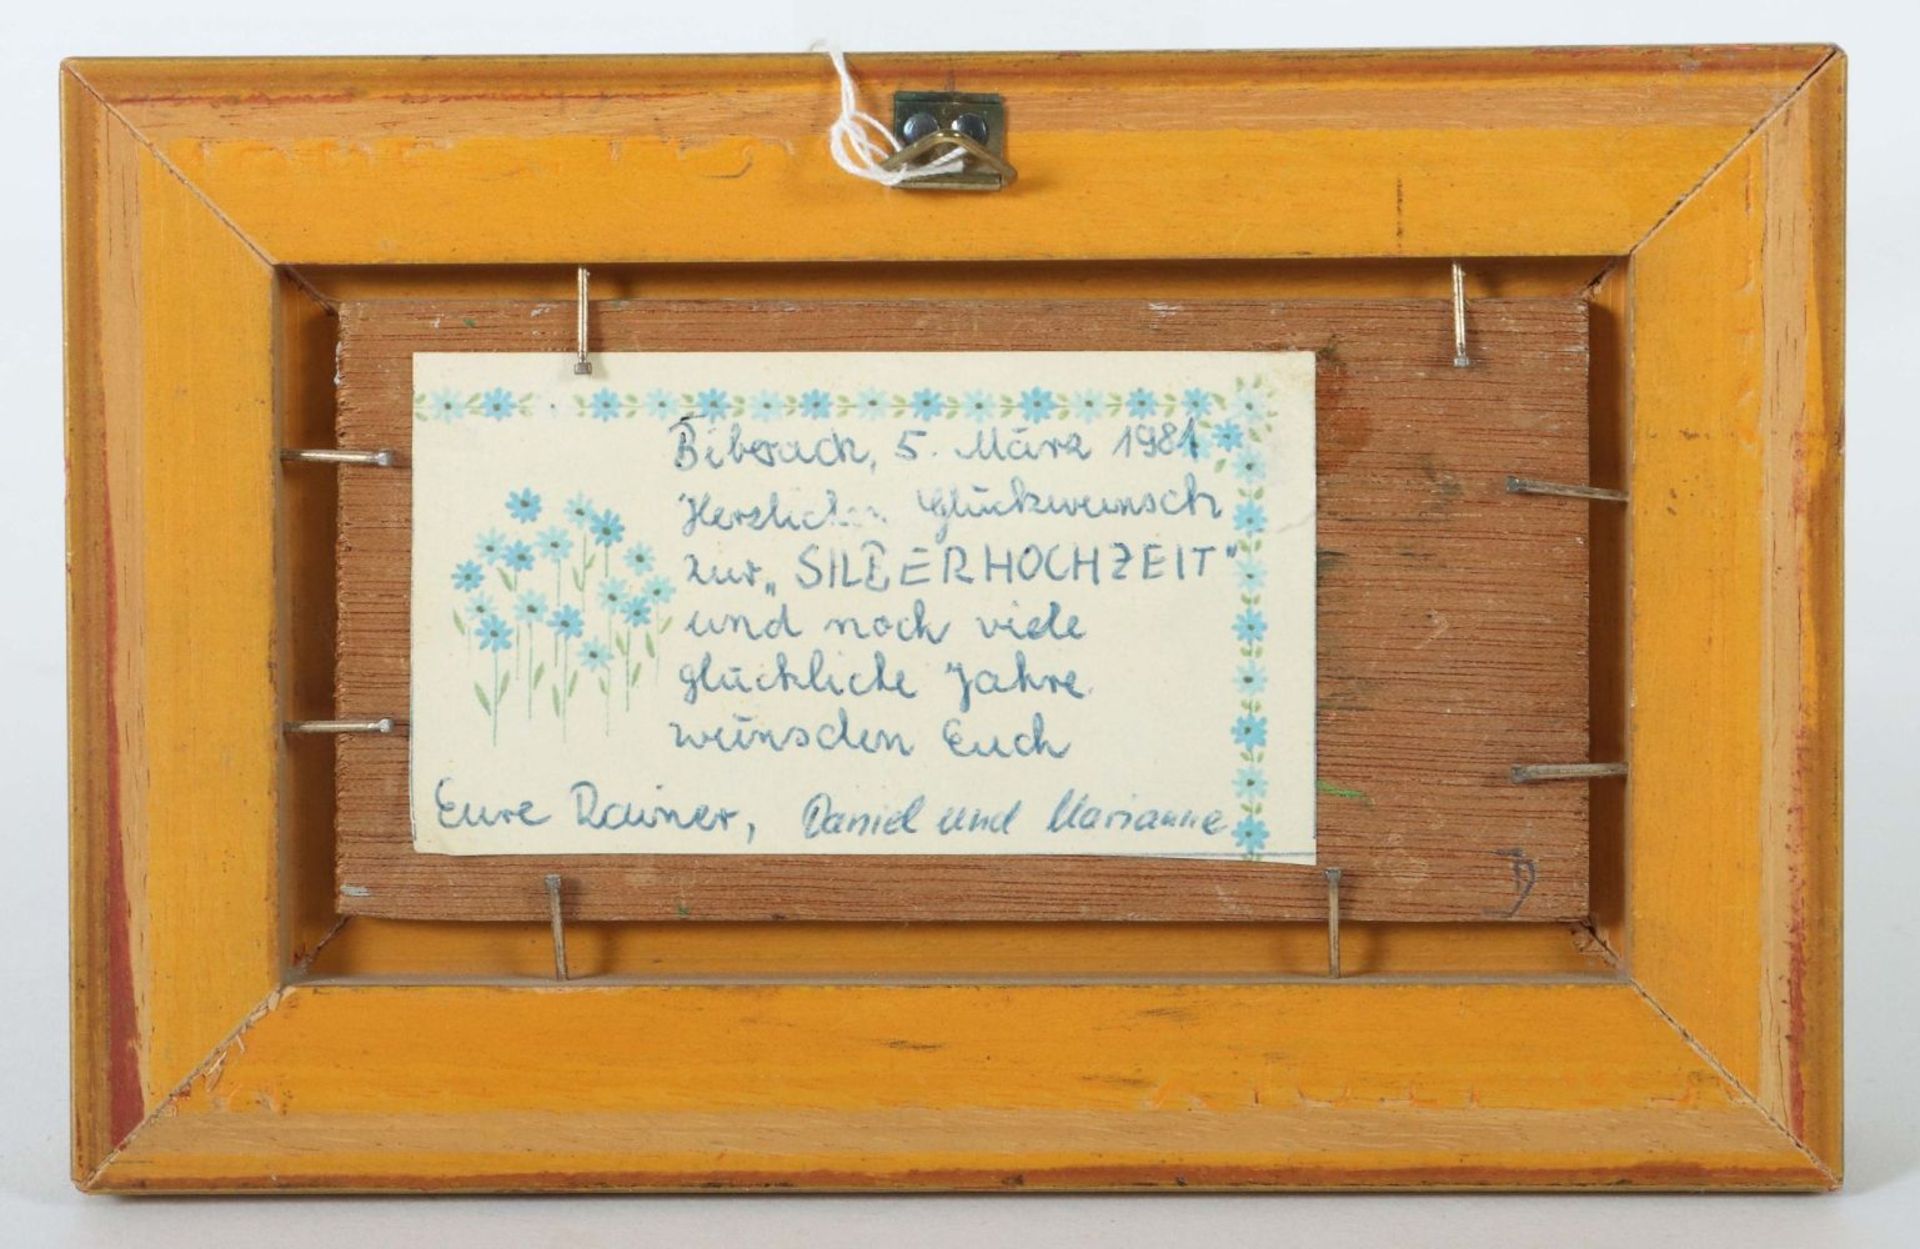 Biberach, 5. März 1981
Herzlichen Glückwunsch
zur „SILBERHOCHZEIT"
und noch viele
glückliche Jahre
wünschen Euch
Eure Rainer, Daniel und Marianne